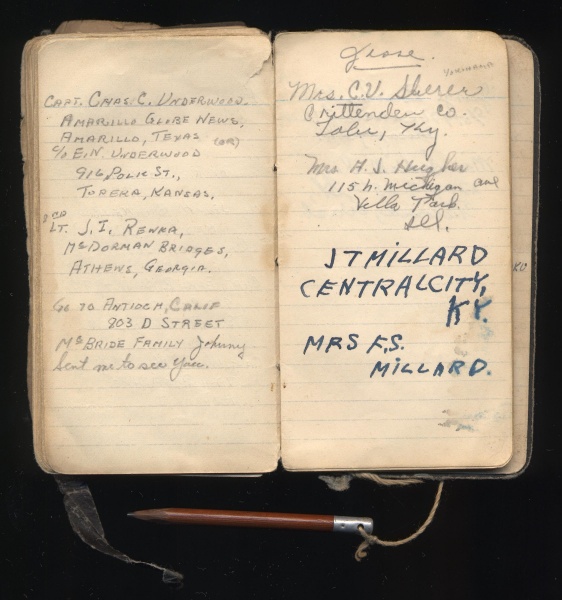 CAPT. CHAS. C. UNDERWOOD.
AMARILLO GLOBE NEWS,
AMARILLO, TEXAS
(OR)
C/O E.N. UNDERWOOD
916 POLK ST.,
TOPEKA, KANSAS.
2ND LT. J. I. REWKA,
McDORMAN BRIDGES,
ATHENS, GEORGIA.
GO TO ANTIOCH, CALIF
903 D STREET
McBRIDE FAMILY Johnny
Sent me to see you.
YOKOHAMA
Mrs. C.V. Sherer
Crittenden Co.
Tolu, Ky.
Mrs H. J. Hughes
115 N. Michigan ave
Villa Park
Ill.
JT MILLARD
CENTRAL CITY,
KY.
MRS F.S.
MILLARD.